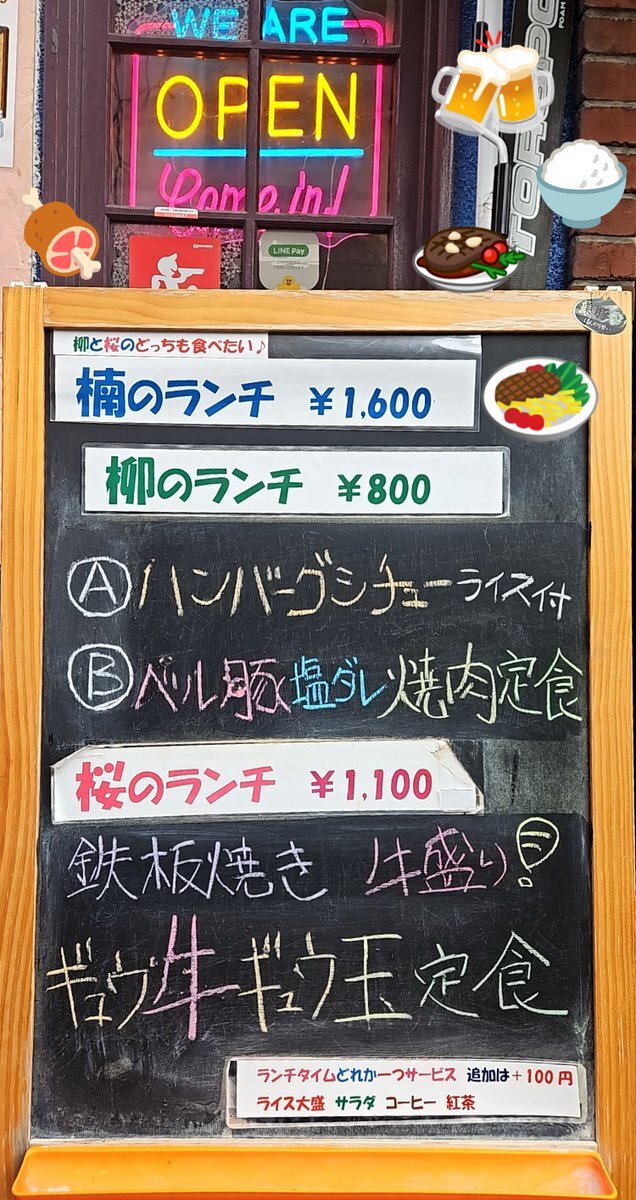 WE ARE
OPEN
Come in!
LINE Pay
柳と桜のどっちも食べたい♪
楠のランチ ￥1,600
柳のランチ ￥800
Ⓐハンバーグシチューライス付
Ⓑベル豚塩ダレ焼肉定食
桜のランチ ￥1,100
鉄板焼き 牛盛り
ギュウ牛ギュウ玉定食
ランチタイムどれか一つサービス 追加は+100円
ライス大盛 サラダ コーヒー 紅茶